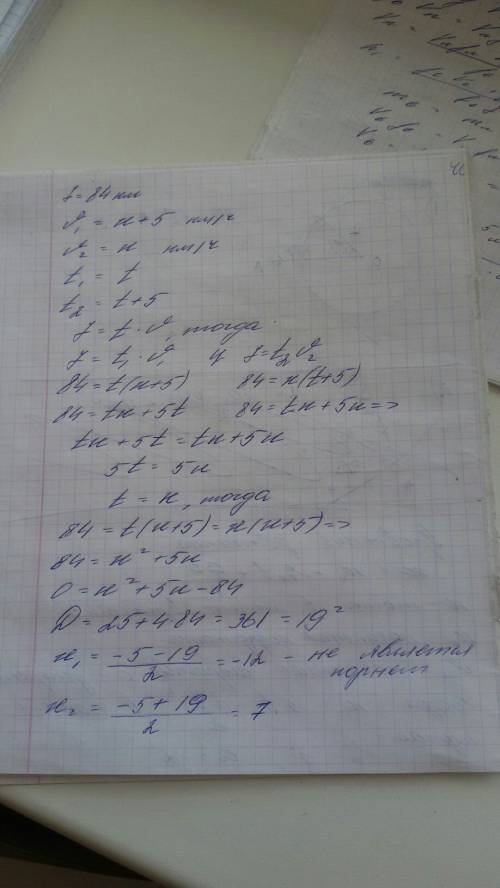 S = 84 км
v₁ = x+5 км/ч
v₂ = x км/ч
t₁ = t
t₂ = t+5
S = t · v, тогда
S = t₁ · v₁ и S = t₂v₂
84 = t(x+5) 84 = x(t+5)
84 = tx + 5t 84 = tx + 5x =>
tx + 5t = tx + 5x
5t = 5x
t = x, тогда
84 = t(x+5) = x(x+5) =>
84 = x² + 5x
0 = x² + 5x - 84
D = 25 + 4·84 = 361 = 19²
x₁ = (-5-19)/2 = -12 - не является
корнем
x₂ = (-5+19)/2 = 7